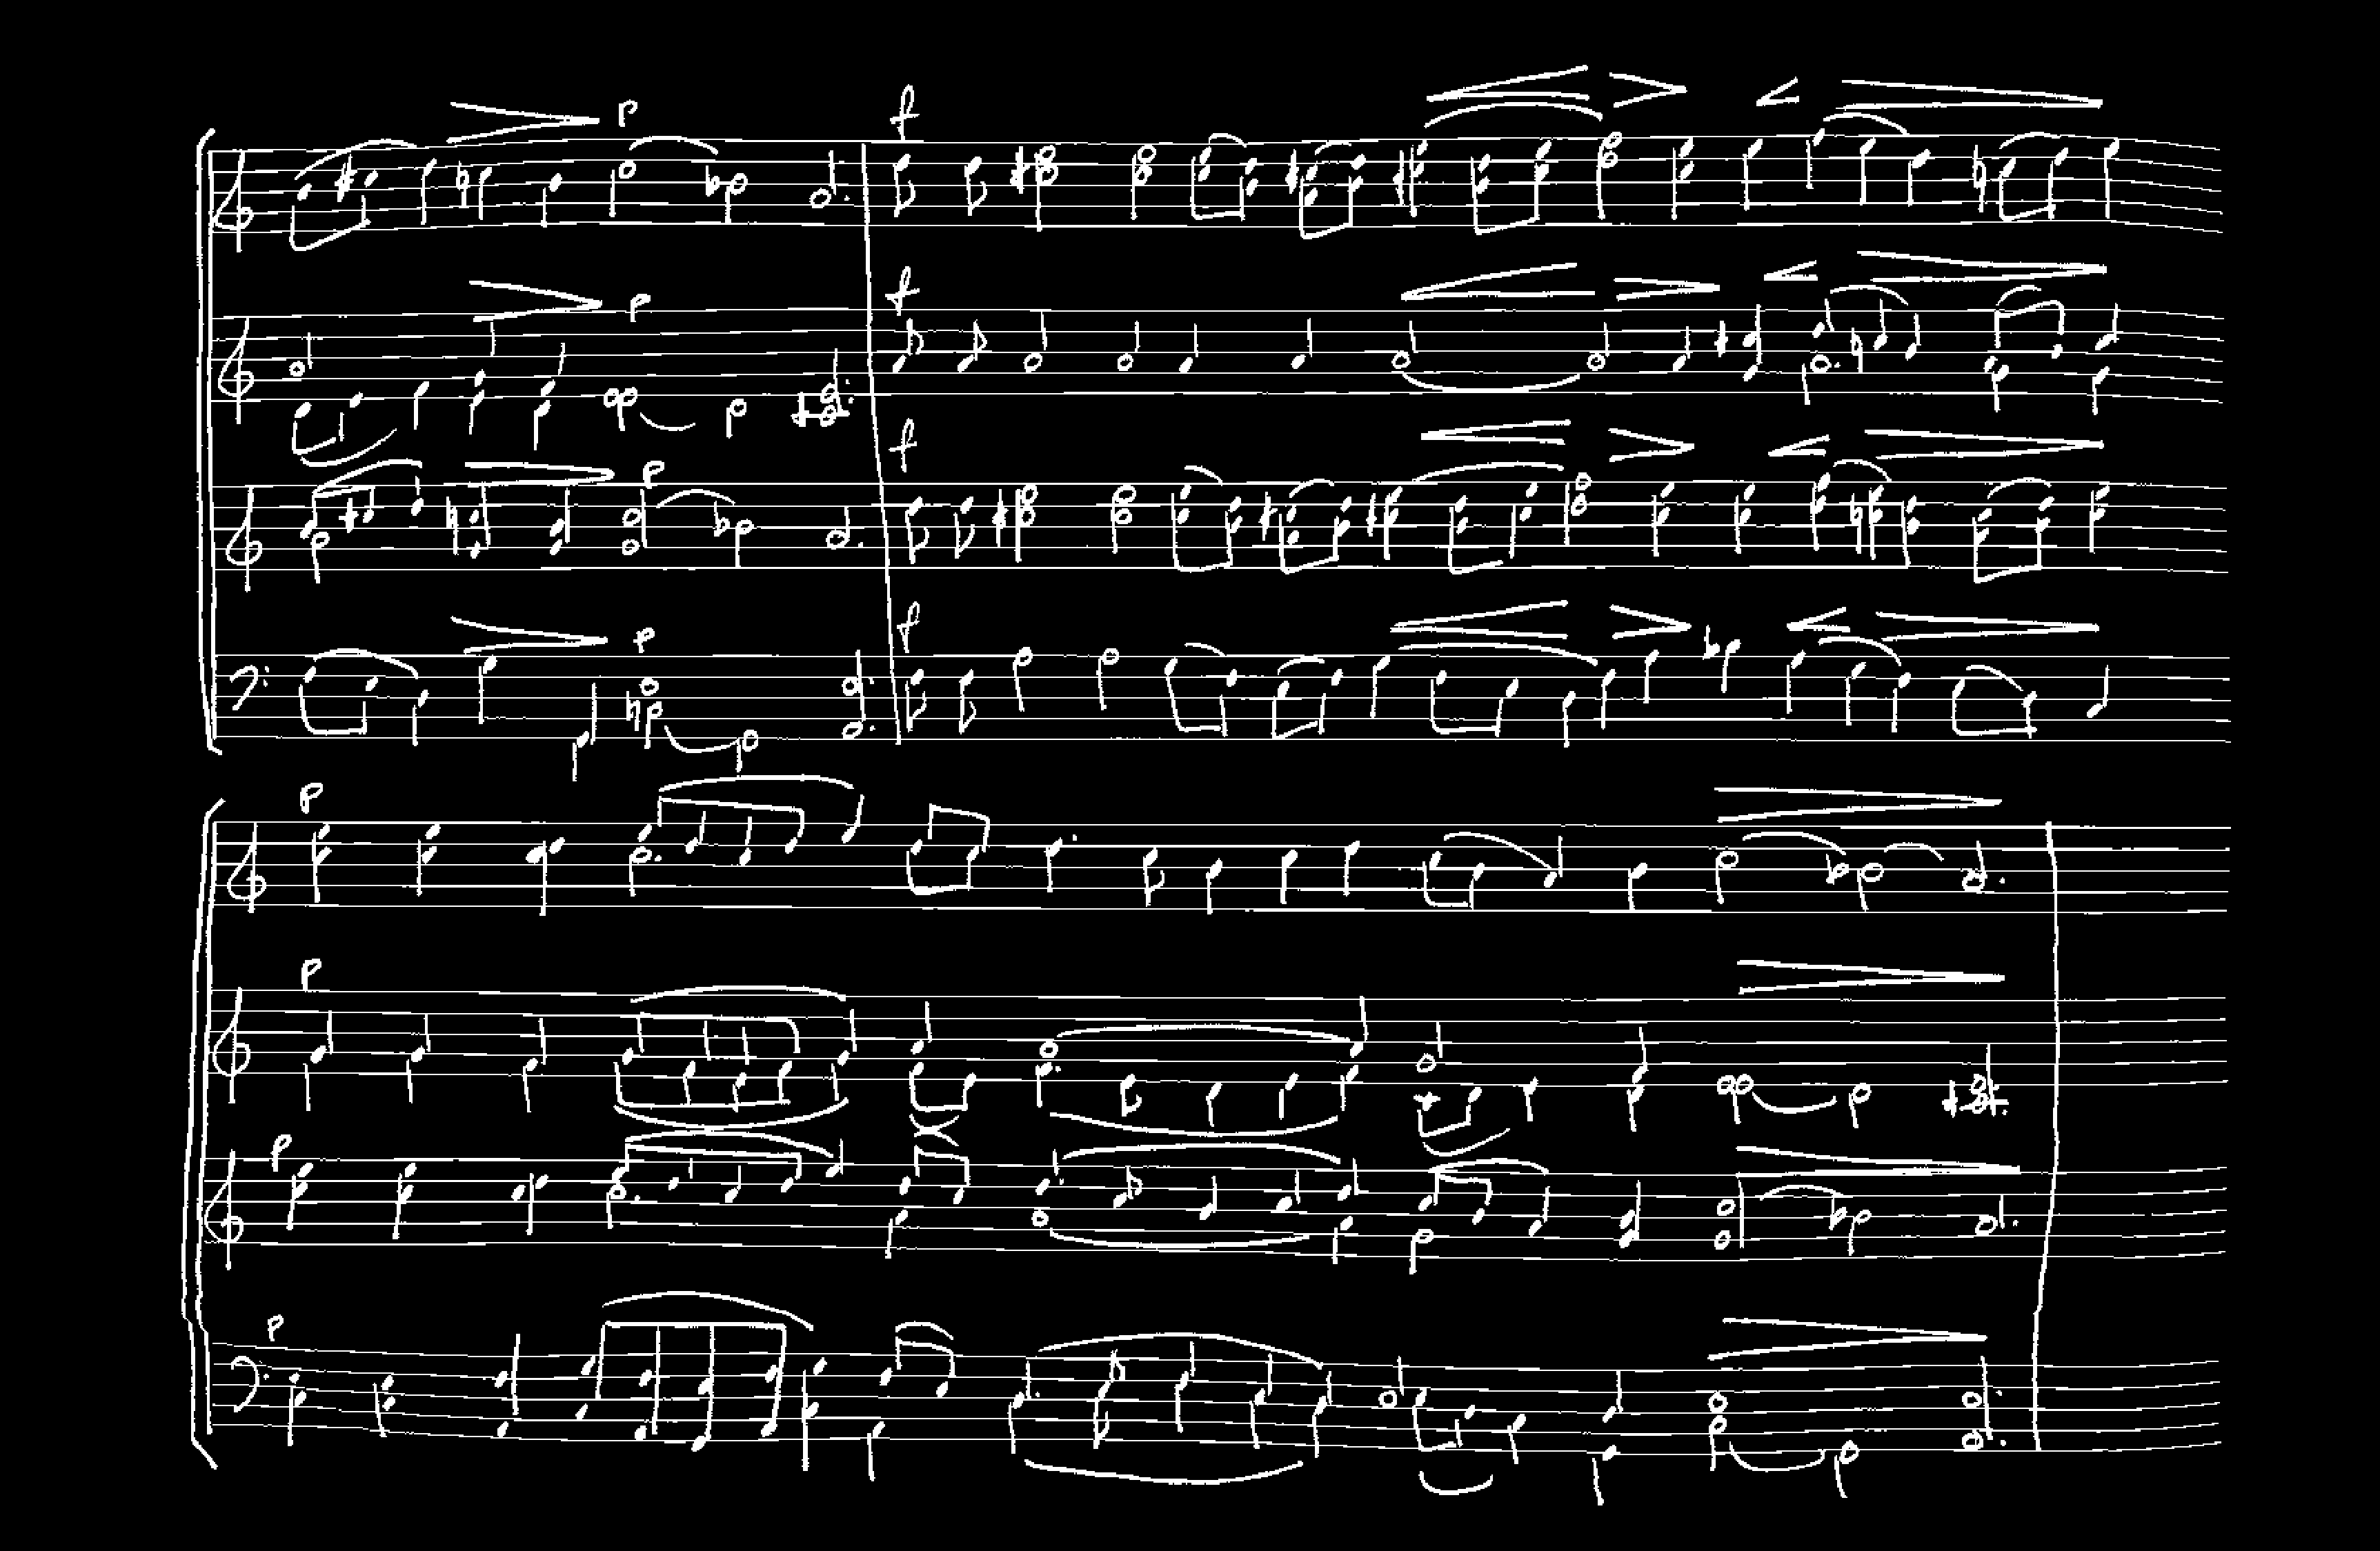 p f
p f
p f
p f
p
p
p
p